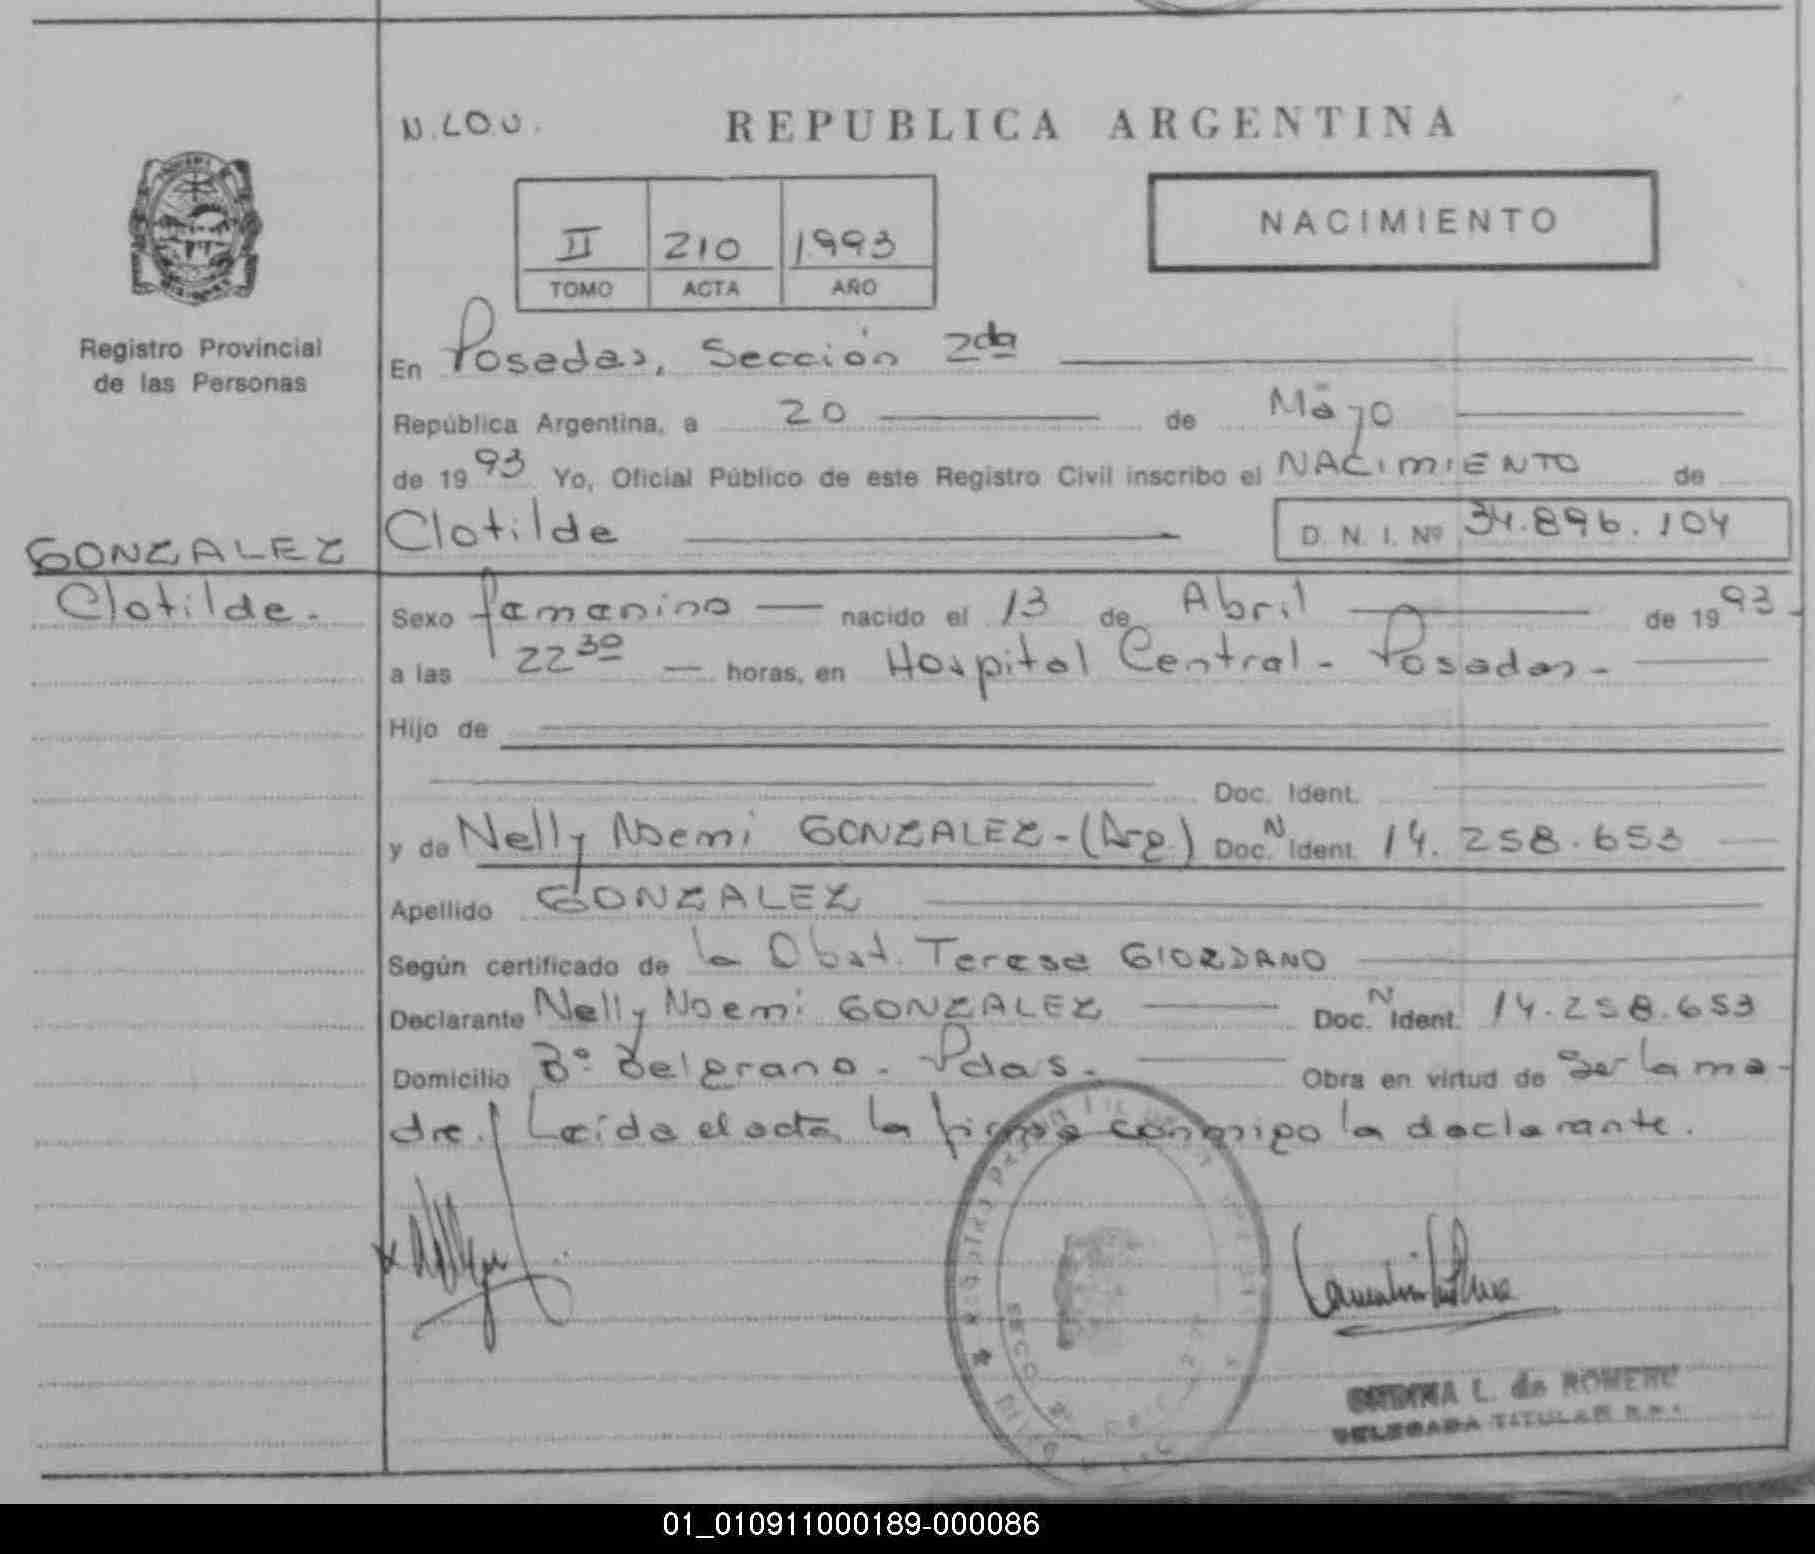 N.LO.U.
REPUBLICA ARGENTINA
II 210 1993
TOMO ACTA AÑO
NACIMIENTO
Registro Provincial
de las Personas
En Posadas, Sección 2da
República Argentina, a 20 de Mayo
de 1993 Yo, Oficial Público de este Registro Civil inscribo el NACIMIENTO de
Clotilde D. N. I. Nº 34.896.104
GONZALEZ
Clotilde.
Sexo femenino nacido el 13 de Abril de 1993
a las 22 30 horas, en Hospital Central - Posadas -
Hijo de
Doc. Ident.
y de Nelly Noemi GONZALEZ - (Arg) Doc. N Ident. 14.258.653
Apellido GONZALEZ
Según certificado de la Obst. Teresa GIORDANO
Declarante Nelly Noemi GONZALEZ Doc. N Ident. 14.258.653
Domicilio Bº Belgrano - Pdas. Obra en virtud de Ser la ma-
dre. / Leída el acta la firma conmigo la declarante.
L. de ROMERO
DELEGADA TITULAR
01_010911000189-000086